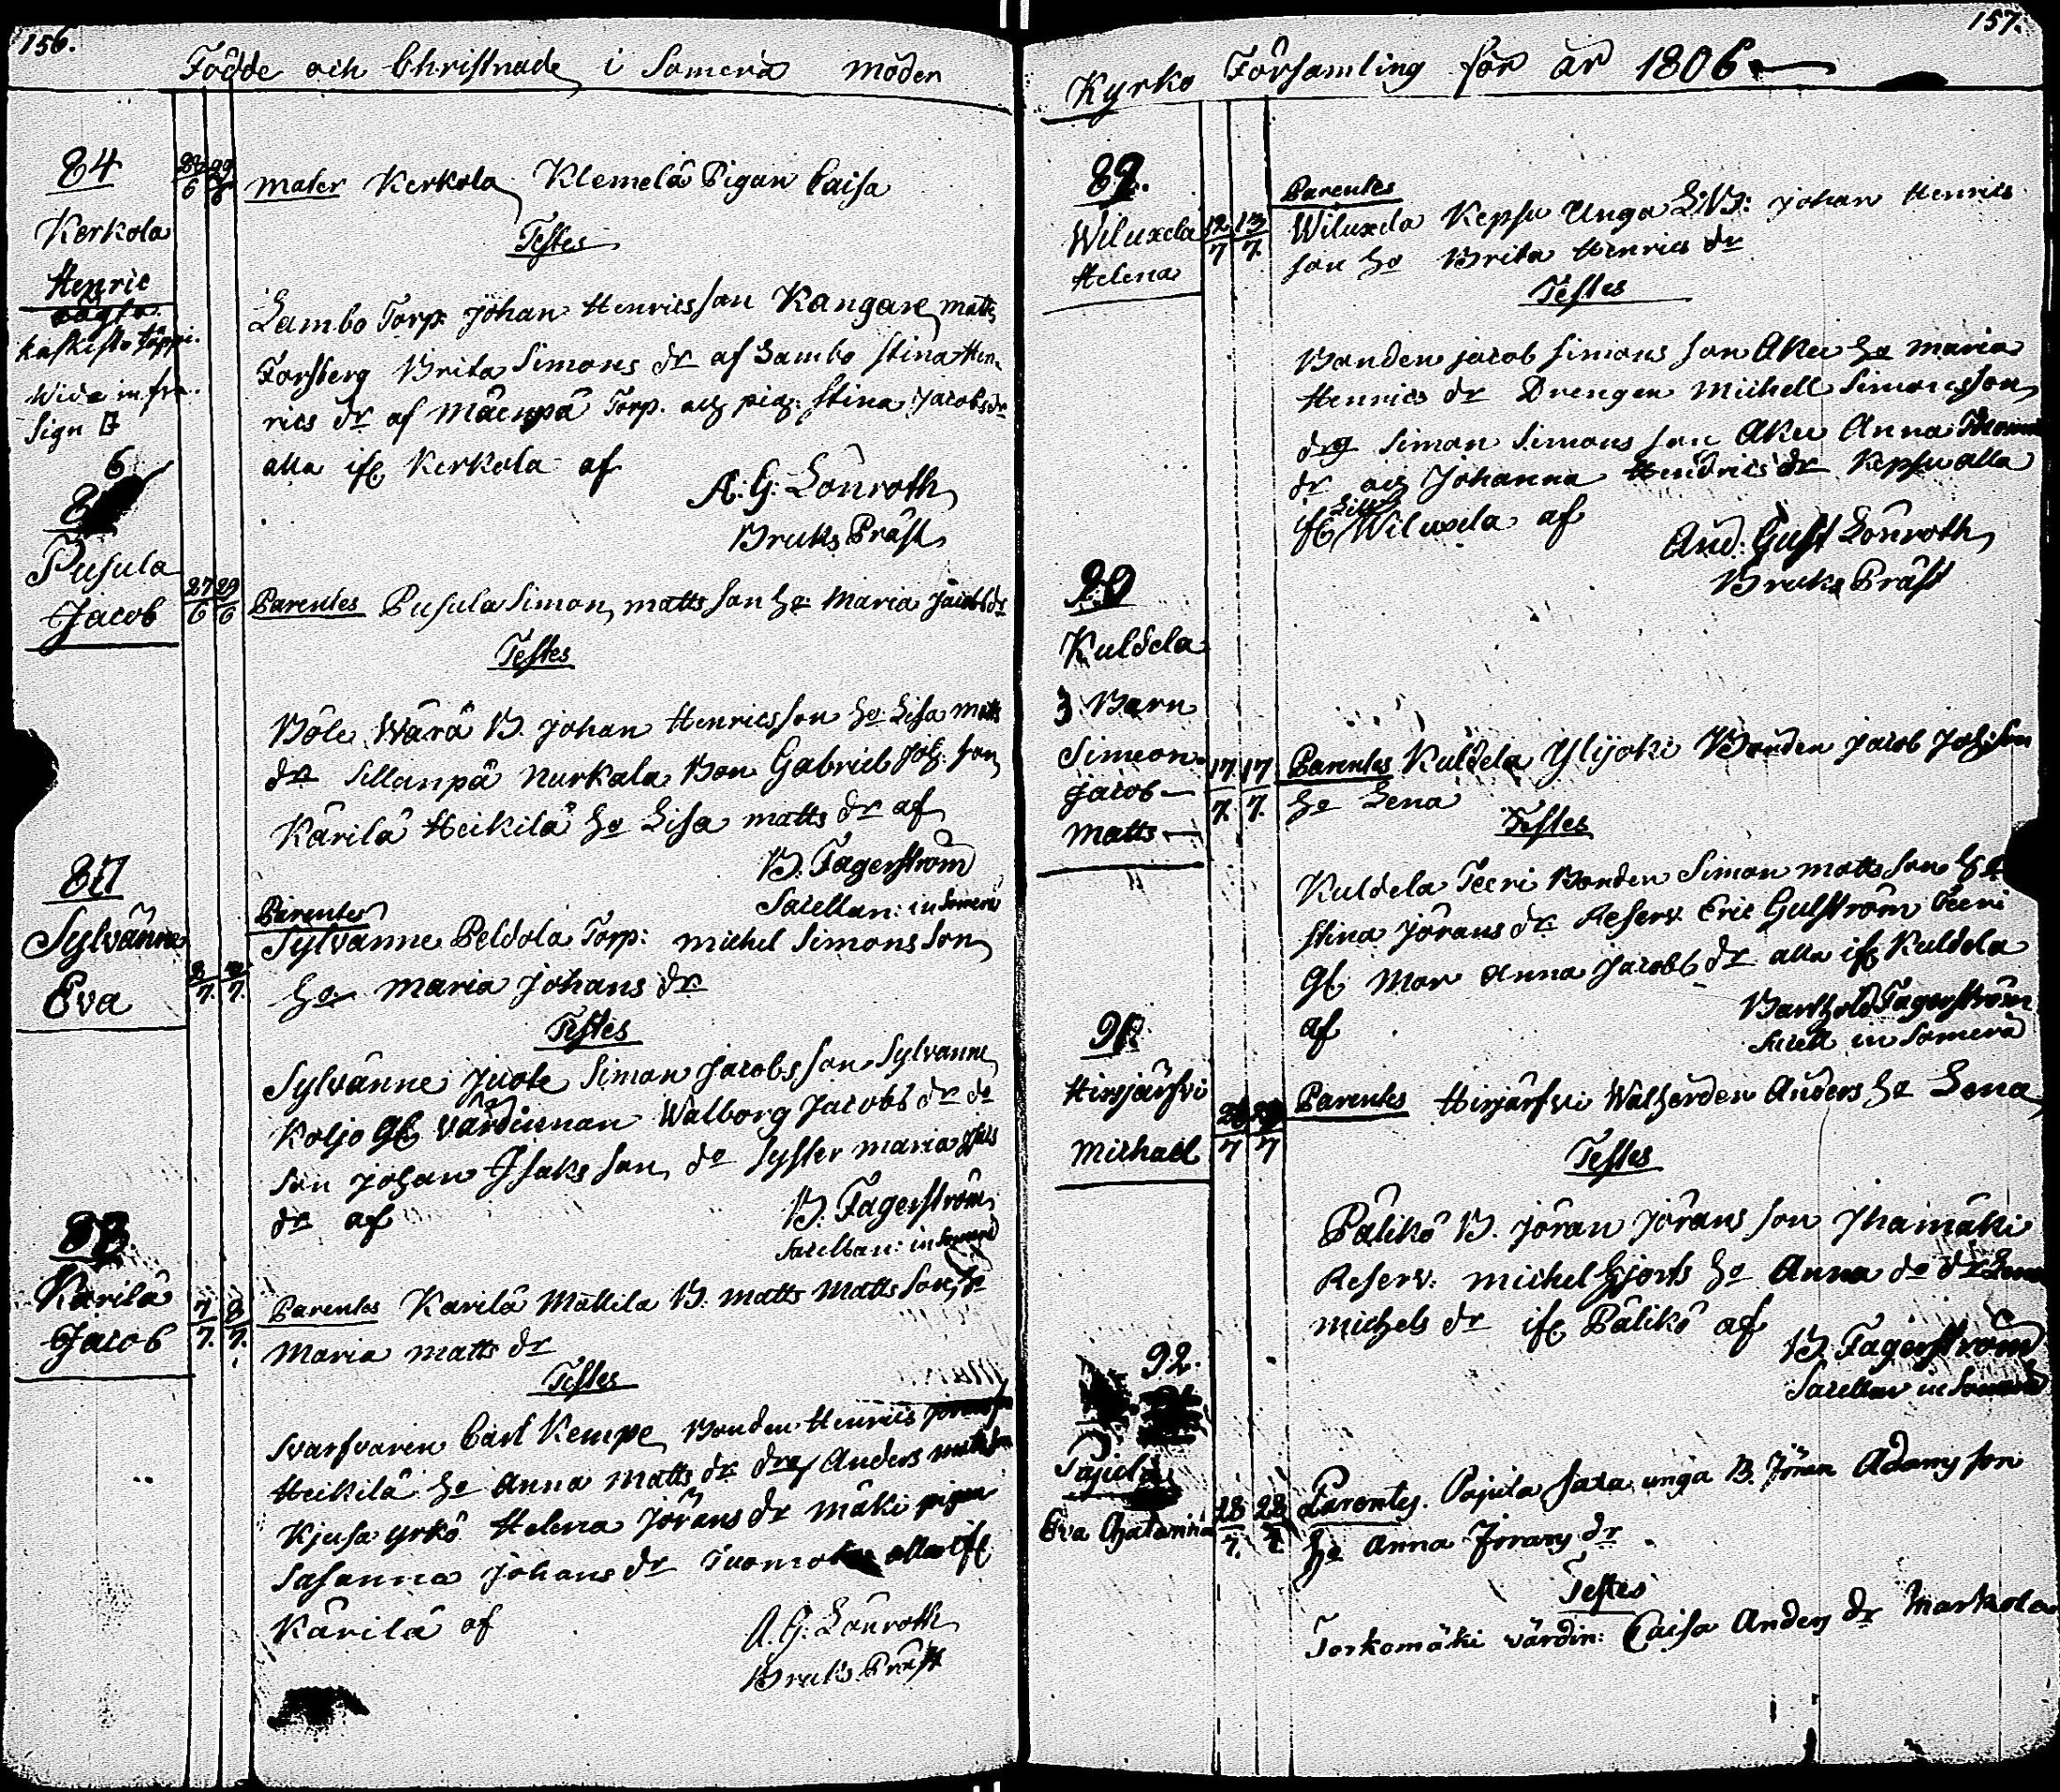 156.
Födde och Christnade i Somerå moder
84
Kerkola
Henric
Kaskisto
Wide infra
Sign
29
6
mater Kerkola Klemelä Pigan Caisa
Testes
Lambo Torp: Johan Henricsson Kangare, matts
Forsberg Brita Simons dr af Lambo Stina Hen-
rics dr af Mäenpä Torp. och pig: Stina Jacobs dr
alla ifr Kerkola af
A: G: Lönroth
Bruks Präst
6
8
Pusula
Jacob
27 29
6 6
Parentes Pusula Simon matts son ho Maria Jacobs dr
Testes
Böle Wärä B. Johan Henricsson ho Lisa matts
dr Sillanpä Nurkala Bon Gabriel Joh. son
Kärilä Heikilä ho Lisa matts dr af
B. Fagerström
Sacellan: in Somerå
87
Sylvänne
Eva
7. 7.
Parentes
Sylvänne Peldola Torp: Michel Simons son
ho Maria Johans dr
Testes
Sylvänne Juote Simon Jacobs son Sylvänne
Koljo Gl Värdinnan Walborg Jacobs dr do
Son Johan Isaks son, do Syster Maria
dr af
B: Fagerström
Sacellan: in Somerå
88
Kärilä
Jacob
7 8
7. 7.
Parentes Kärilä Mattila B. Matts Matts son, ho
Maria matts dr
Testes
Svarfvaren Carl Kempe, Bonden Henrics
Heikilä ho Anna Matts dr drg Anders
Kjusa yrkö Helena Jörans dr Mäki pigan
Susanna Johans dr alla ifr
Kärilä af
A. G. Lönroth
Bruks Präst
157.
Kyrko Församling för år 1806
89.
Wiluxela
Helena
12 13
7 7.
Parentes
Wiluxela Keppu Unga L:B: Johan Henrics
son ho Brita Henrics dr
Testes
Bonden Jacob Simons son Aku ho Maria
Henrics dr Drengen Michell Simonsson
drg Simon Simons son Aku Anna
dr och Johanna Hendrics dr Keppu alla
ifr Wiluxela af
And: Gust Lönroth
Bruks Präst
90
Kuldela
3 Barn
Simeon
Jacob
Matts
17 17
7. 7.
Parentes Kuldela Ylijoki Bonden Jacob Joh: son
ho Lena
Testes
Kuldela Teeri Bonden Simon matts son ho
Stina Jörans dr Reserv Eric Gulström Teeri
Gl Mor Anna Jacobs dr alla ifr Kuldela
af
Barthold Fagerström
Sacell in Somerå
91
Hirsjärfvi
Michael
28 29
7 7
Parentes Hirsjärfvi Walherden Anders ho Lena
Testes
Pälikö B. Jöran Jörans son Ihamäki
Reserv. Michel Hjort ho Anna do dr Lena
Michels dr ifr Pälikö af
B. Fagerström
Sacellan in Somerå
92.
Pajula
Eva Chatarina
28 28
7. 7.
Parentes. Pajula Sata unga B. Jöran Adams son
ho Anna Jörans dr
Testes
Torkomäki värdin: Caisa Anders dr Markola